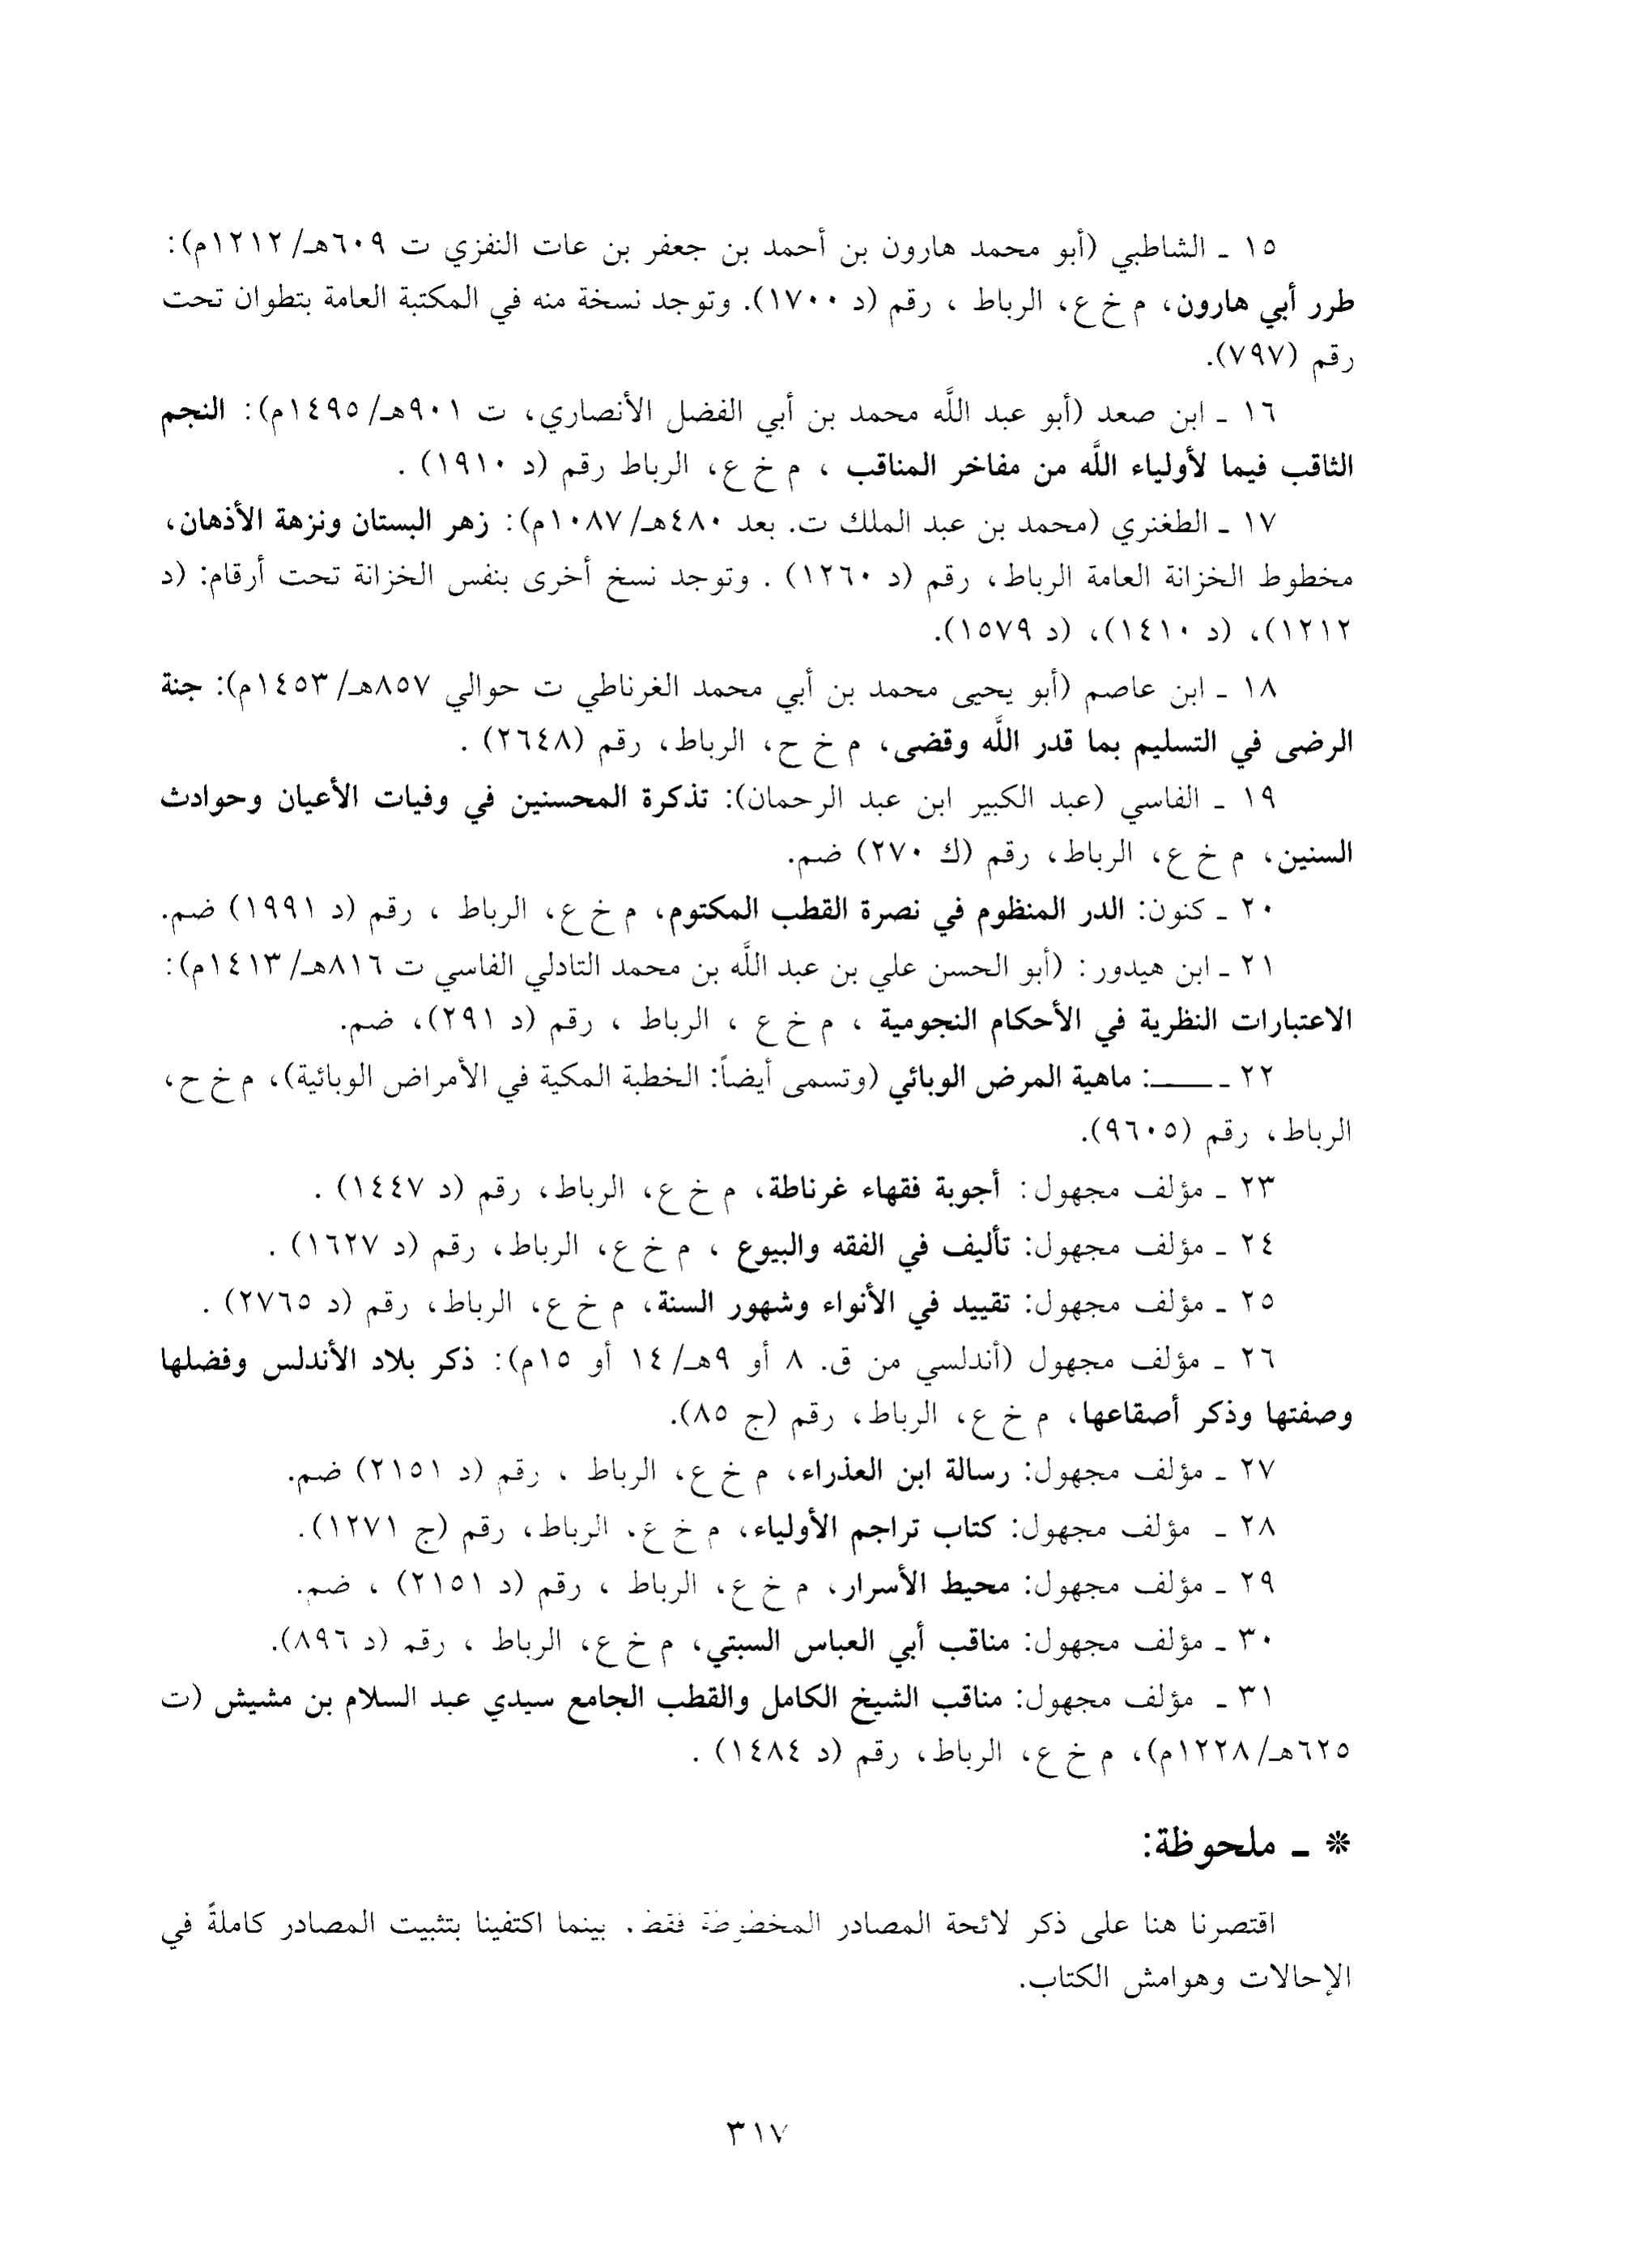 ١٥ ـ الشاطبي (أبو محمد هارون بن أحمد بن جعفر بن عات النفزي ت ٦٠٩هـ/١٢١٢م):
طرر أبي هارون، م خ ع، الرباط ، رقم (د ١٧٠٠). وتوجد نسخة منه في المكتبة العامة بتطوان تحت
رقم (٧٩٧).
١٦ ـ ابن صعد (أبو عبد اللَّه محمد بن أبي الفضل الأنصاري، ت ٩٠١هـ/١٤٩٥م): النجم
الثاقب فيما لأولياء اللَّه من مفاخر المناقب ، م خ ع، الرباط رقم (د ١٩١٠) .
١٧ ـ الطغنري (محمد بن عبد الملك ت. بعد ٤٨٠هـ/١٠٨٧م): زهر البستان ونزهة الأذهان،
مخطوط الخزانة العامة الرباط، رقم (د ١٢٦٠) . وتوجد نسخ أخرى بنفس الخزانة تحت أرقام: (د
١٢١٢)، (د ١٤١٠)، (د ١٥٧٩).
١٨ ـ ابن عاصم (أبو يحيى محمد بن أبي محمد الغرناطي ت حوالي ٨٥٧هـ/١٤٥٣م): جنة
الرضى في التسليم بما قدر اللَّه وقضى، م خ ح، الرباط، رقم (٢٦٤٨) .
١٩ ـ الفاسي (عبد الكبير ابن عبد الرحمان): تذكرة المحسنين في وفيات الأعيان وحوادث
السنين، م خ ع، الرباط، رقم (ك ٢٧٠) ضم.
٢٠ ـ كنون: الدر المنظوم في نصرة القطب المكتوم، م خ ع، الرباط ، رقم (د ١٩٩١) ضم.
٢١ ـ ابن هيدور: (أبو الحسن علي بن عبد اللَّه بن محمد التادلي الفاسي ت ٨١٦هـ/١٤١٣م):
الاعتبارات النظرية في الأحكام النجومية ، م خ ع ، الرباط ، رقم (د ٢٩١)، ضم.
٢٢ ـ ـــــ: ماهية المرض الوبائي (وتسمى أيضاً: الخطبة المكية في الأمراض الوبائية)، م خ ح،
الرباط، رقم (٩٦٠٥).
٢٣ ـ مؤلف مجهول: أجوبة فقهاء غرناطة، م خ ع، الرباط، رقم (د ١٤٤٧) .
٢٤ ـ مؤلف مجهول: تأليف في الفقه والبيوع ، م خ ع، الرباط، رقم (د ١٦٢٧) .
٢٥ ـ مؤلف مجهول: تقييد في الأنواء وشهور السنة، م خ ع، الرباط، رقم (د ٢٧٦٥) .
٢٦ ـ مؤلف مجهول (أندلسي من ق. ٨ أو ٩هـ/١٤ أو ١٥م): ذكر بلاد الأندلس وفضلها
وصفتها وذكر أصقاعها، م خ ع، الرباط، رقم (ج ٨٥).
٢٧ ـ مؤلف مجهول: رسالة ابن العذراء، م خ ع، الرباط ، رقم (د ٢١٥١) ضم.
٢٨ ـ مؤلف مجهول: كتاب تراجم الأولياء، م خ ع، الرباط، رقم (ج ١٢٧١).
٢٩ ـ مؤلف مجهول: محيط الأسرار، م خ ع، الرباط ، رقم (د ٢١٥١) ، ضم.
٣٠ ـ مؤلف مجهول: مناقب أبي العباس السبتي، م خ ع، الرباط ، رقم (د ٨٩٦).
٣١ ـ مؤلف مجهول: مناقب الشيخ الكامل والقطب الجامع سيدي عبد السلام بن مشيش (ت
٦٢٥هـ/١٢٢٨م)، م خ ع، الرباط، رقم (د ١٤٨٤) .
* ـ ملحوظة:
اقتصرنا هنا على ذكر لائحة المصادر المخطوطة فقط. بينما اكتفينا بتثبيت المصادر كاملةً في
الإحالات وهوامش الكتاب.
٣١٧